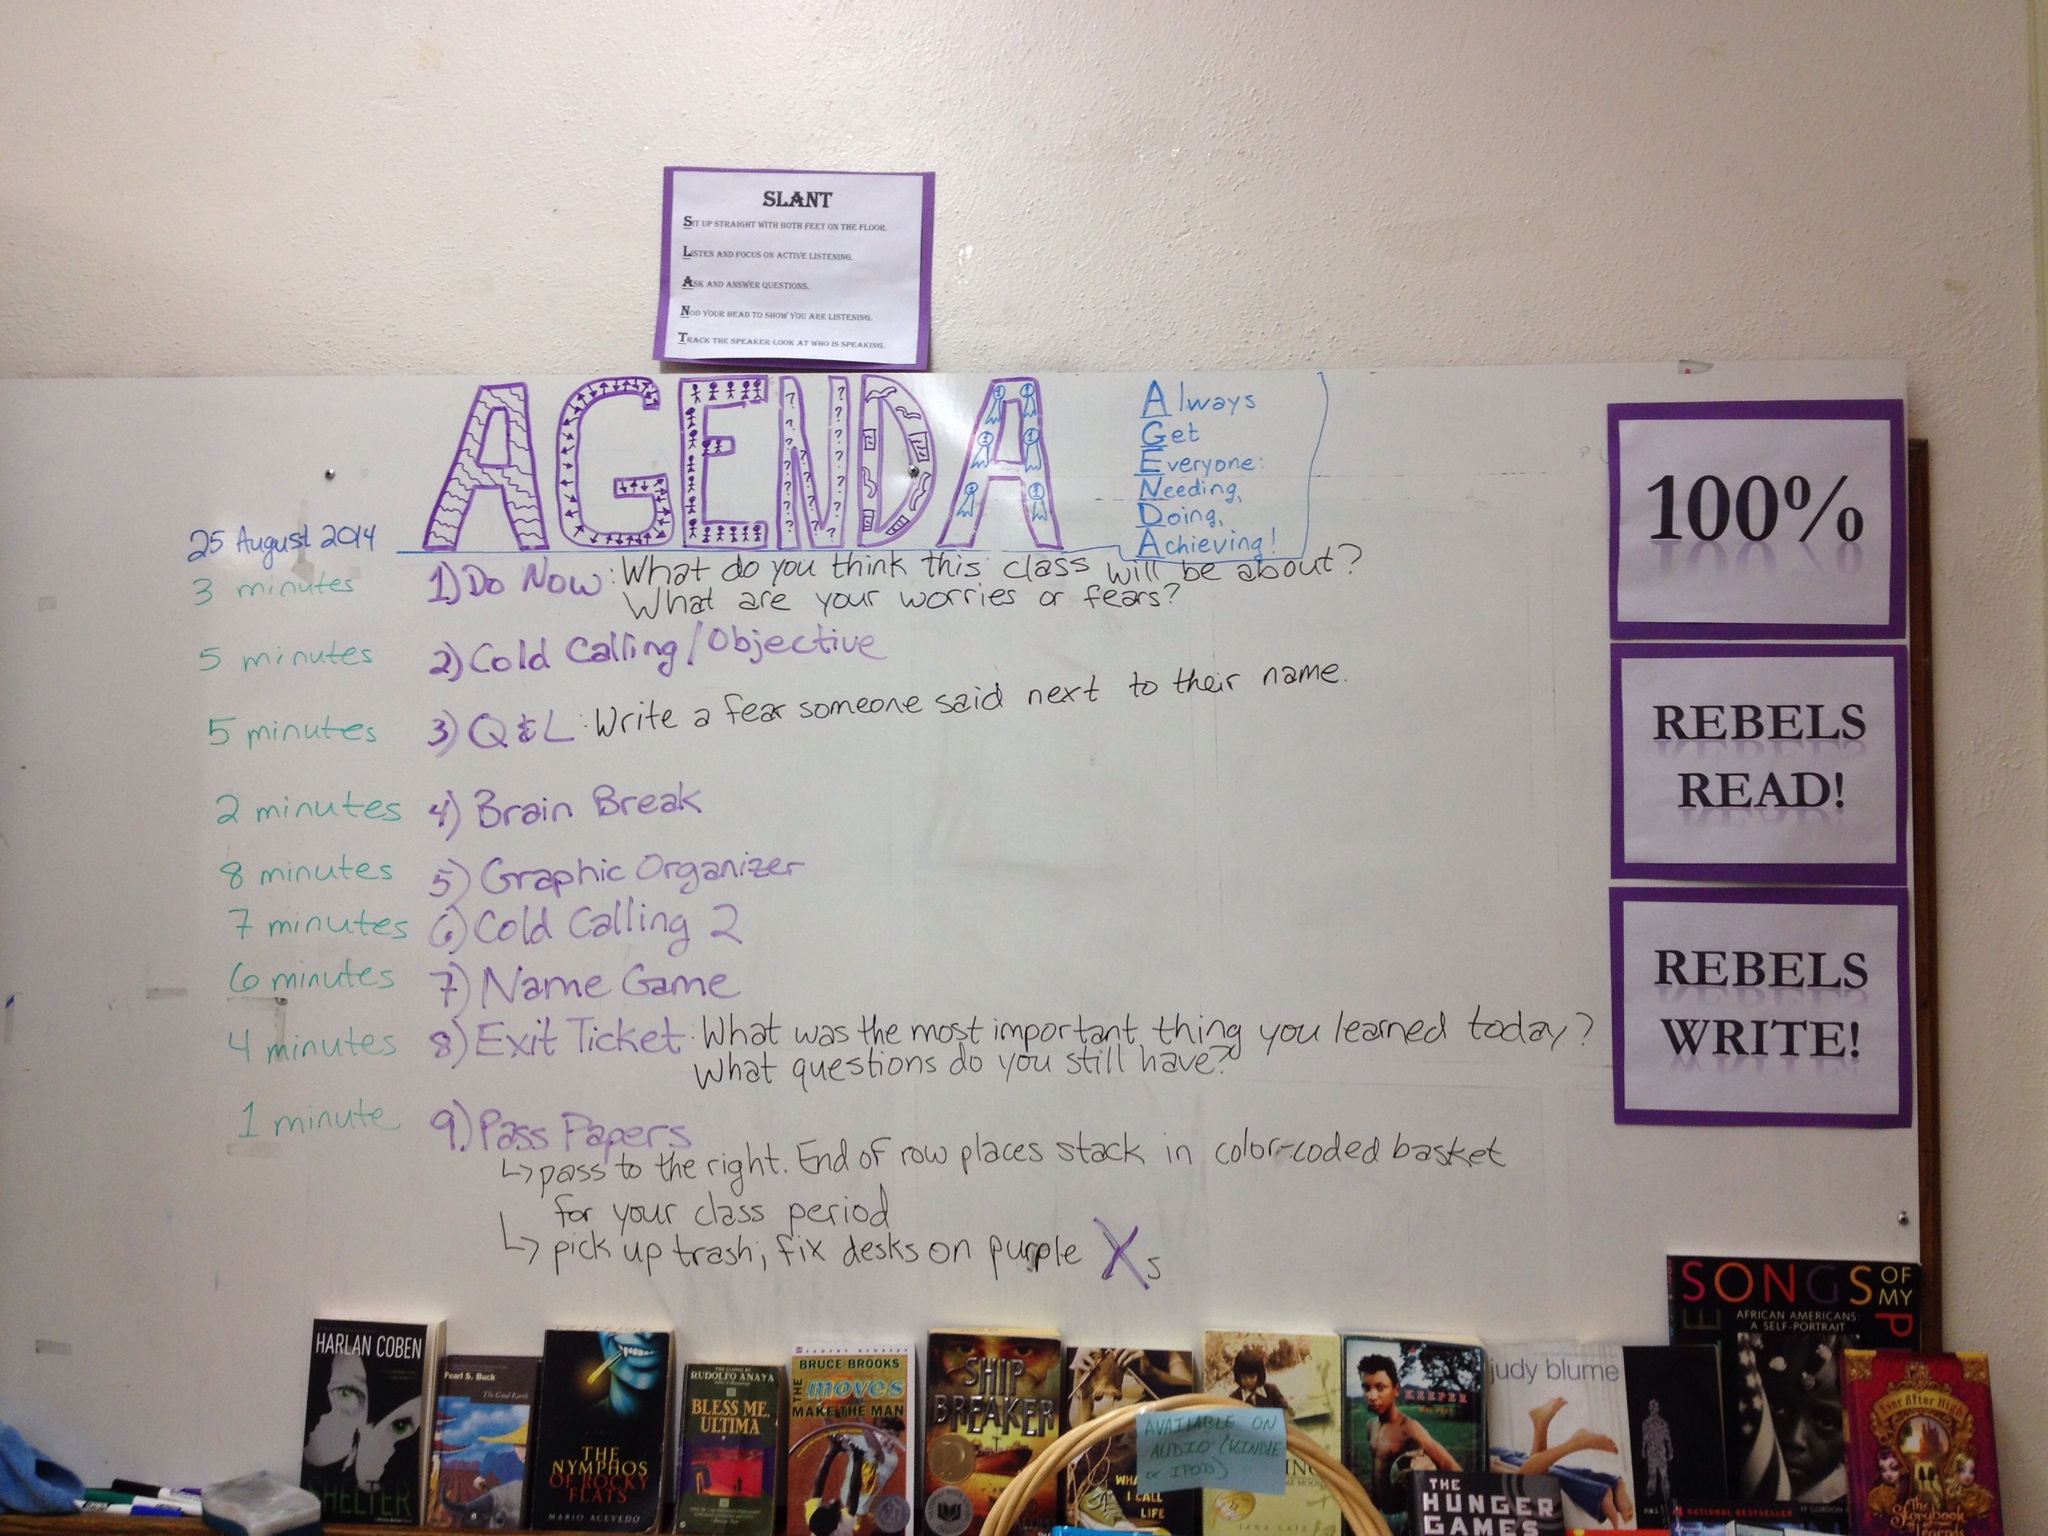 SLANT
SIT UP STRAIGHT WITH BOTH FEET ON THE FLOOR.
LISTEN AND FOCUS ON ACTIVE LISTENING.
ASK AND ANSWER QUESTIONS.
NOD YOUR HEAD TO SHOW YOU ARE LISTENING.
TRACK THE SPEAKER-LOOK AT WHO IS SPEAKING.
AGENDA
Always
Get
Everyone:
Needing,
Doing,
Achieving!
25 August 2014
3 minutes 1) Do Now: What do you think this class will be about?
What are your worries or fears?
5 minutes 2) Cold Calling/Objective
5 minutes 3) Q&L: Write a fear someone said next to their name.
2 minutes 4) Brain Break
8 minutes 5) Graphic Organizer
7 minutes 6) Cold Calling 2
6 minutes 7) Name Game
4 minutes 8) Exit Ticket: What was the most important thing you learned today?
What questions do you still have?
1 minute 9) Pass Papers
↳ pass to the right. End of row places stack in color-coded basket
for your class period
↳ pick up trash; fix desks on purple Xs
100%
REBELS
READ!
REBELS
WRITE!
HARLAN COBEN
SHELTER
Pearl S. Buck
The Good Earth
THE
NYMPHOS
OF ROCKY
FLATS
MARIO ACEVEDO
RUDOLFO ANAYA
BLESS ME,
ULTIMA
BRUCE BROOKS
THE moves
MAKE THE MAN
SHIP
BREAKER
WHAT
I CALL
LIFE
AVAILABLE ON
AUDIO (KINDLE
or IPOD)
KEEPER
judy blume
THE
HUNGER
GAMES
SONGS OF
MY
P
E
AFRICAN AMERICANS
A SELF-PORTRAIT
NATIONAL BESTSELLER
Ever After High
The
Storybook